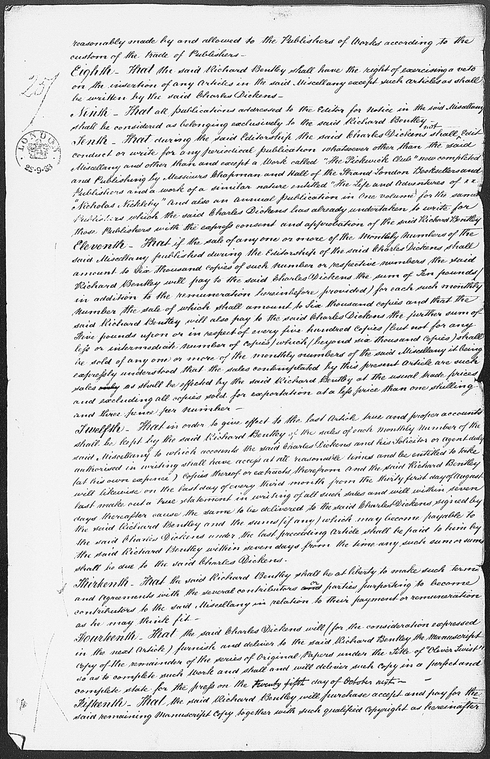 reasonably made by and allowed to the Publishers of Works according to the
custom of the trade of Publishers –
Eighth – That the said Richard Bentley shall have the right of exercising a veto
on the insertion of any Articles in the said Miscellany except such Articles as shall
be written by the said Charles Dickens –
Ninth – That all publications addressed to the Editor for notice in the said Miscellany
shall be considered as belonging exclusively to the said Richard Bentley –
Tenth – That during the said Editorship the said Charles Dickens shall not Edit
conduct or write for any periodical publication whatsoever other than the said
Miscellany and other than and except a Work called "The Pickwick Club" now completed
and Publishing by Messieurs Chapman and Hall of the Strand London Booksellers and
Publishers and a work of a similar nature entitled "The Life and Adventures of
"Nicholas Nickleby" and also an annual publication in One volume for the same
Publishers which the said Charles Dickens has already undertaken to write for
those Publishers with the express consent and approbation of the said Richard Bentley
Eleventh – That if the sale of any one or more of the Monthly Numbers of the
said Miscellany published during the Editorship of the said Charles Dickens shall
amount to Six thousand copies of such number or respective numbers the said
Richard Bentley will pay to the said Charles Dickens the sum of Ten pounds
in addition to the remuneration hereinbefore provided) for each such monthly
number the sale of which shall amount to Six thousand copies and that the
said Richard Bentley will also pay to the said Charles Dickens the further sum of
Five pounds upon or in respect of every five hundred copies (but not for any
less or intermediate number of copies) which (beyond six thousand copies) shall
be sold of any one or more of the monthly numbers of the said Miscellany it being
expressly understood that the sales contemplated by this present Article are such
sales only as shall be effected by the said Richard Bentley at the usual trade prices
and excluding all copies sold for exportation at a less price than one shilling
and three pence per number –
Twelfth – That in order to give effect to the last Article true and proper accounts
shall be kept by the said Richard Bentley of the sales of each Monthly Number of the
said Miscellany to which accounts the said Charles Dickens and his Solicitor or Agent duly
authorised in writing shall have access at all reasonable times and be entitled to take
(at his own expence) copies thereof or extracts therefrom and the said Richard Bentley
will likewise on the last day of every third month from the thirty first day of August
last make out a true statement in writing of all such sales and will within seven
days thereafter cause the same to be delivered to the said Charles Dickens signed by
the said Richard Bentley and the sums (if any) which may become payable to
the said Charles Dickens under the last preceding Article shall be paid to him by
the said Richard Bentley within seven days from the time any such sum or sums
shall be due to the said Charles Dickens.
Thirteenth – That the said Richard Bentley shall be at liberty to make such terms
and Agreements with the several contributors and parties purposing to become
contributors to the said Miscellany in relation to their payment or remuneration
as he may think fit –
Fourteenth – That the said Charles Dickens will (for the consideration expressed
in the next Article) furnish and deliver to the said Richard Bentley the Manuscript
copy of the remainder of the series of Original Papers under the Title of "Oliver Twist"
so as to complete such Work and shall and will deliver such Copy in a perfect and
complete state for the press on the Twenty fifth day of October next –
Fifteenth – That the said Richard Bentley will purchase accept and pay for the
said remaining Manuscript Copy together with such qualified Copyright as hereinafter
257
LONDON